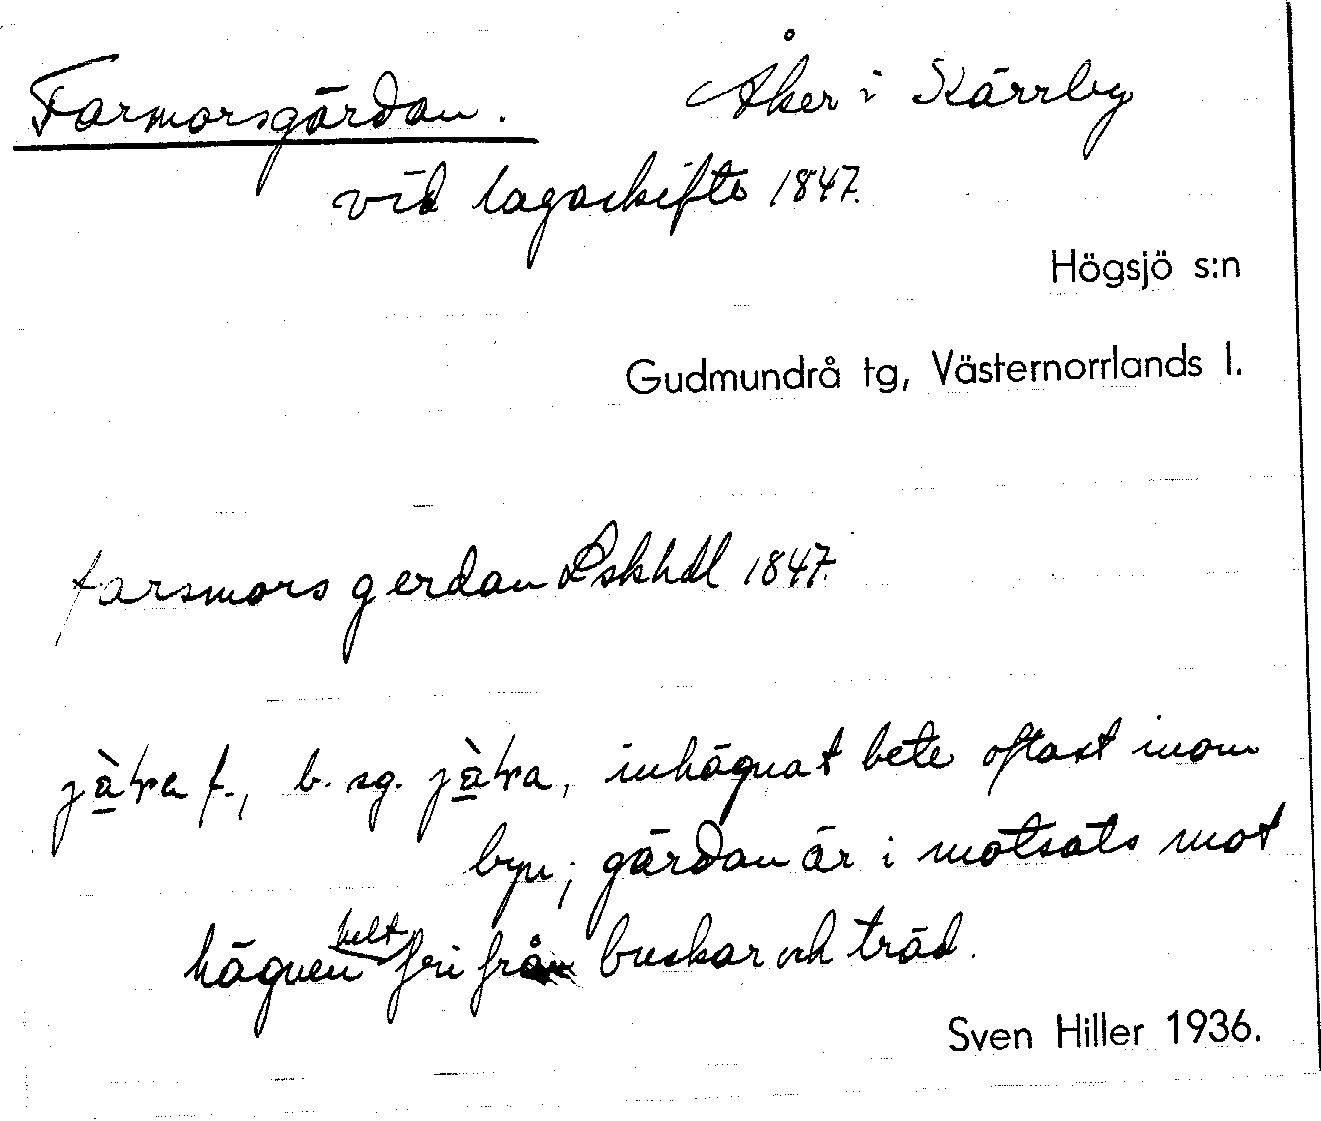 Farmorsgärdan. Åker i Kärrby
vid lagaskifte 1847.
Högsjö s:n
Gudmundrå tg, Västernorrlands l.
farsmors gerdan Lskhdl 1847
f., b. sg. inhägnat bete oftast inom
byn; gärdan är i motsats mot
hägnen helt fri från buskar och träd.
Sven Hiller 1936.